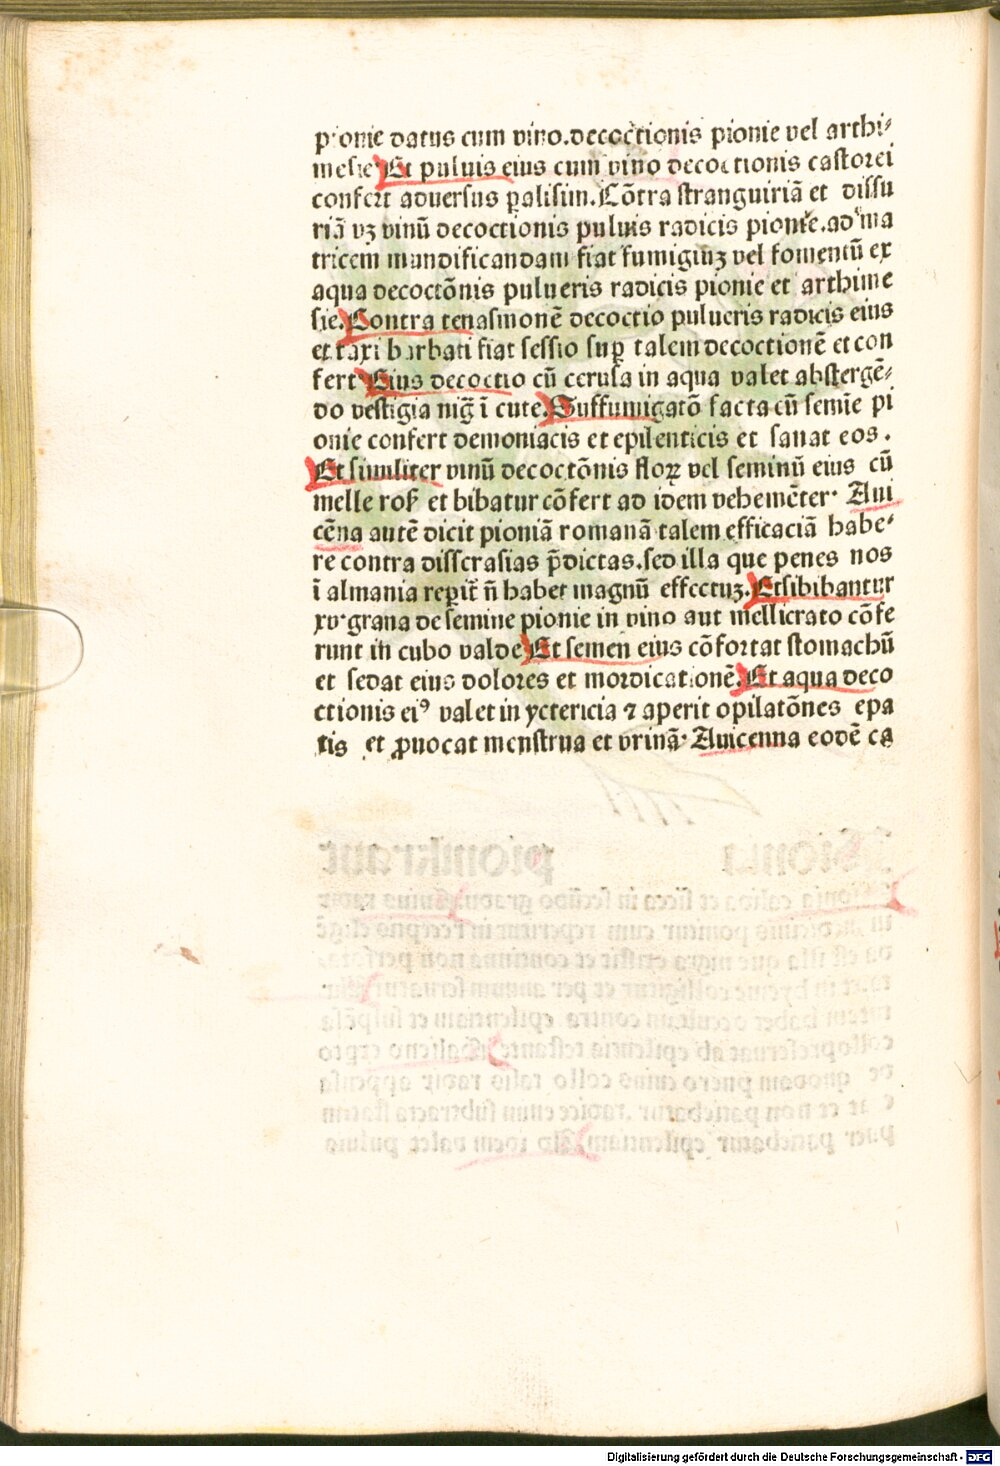 pionie datus cum vino.decoctionis pionie vel arthi⸗
mesie Et puluis eius cum vino decoctionis castorei
confert aduersus palisim.Cōtra stranguiriā et dissu
riā vꝫ vinū decoctionis puluis radicis pionie.ad ma
tricem mundificandam fiat fumigiuꝫ vel fomentū ex
aqua decoctōnis pulueris radicis pionie et arthime
sie.Contra tenasmonē decoctio pulueris radicis eius
et taxi barbati fiat sessio suꝑ talem decoctionē et con
fert Eius decoctio cū cerusa in aqua valet abstergē⸗
do vestigia nigͣ ī cute.Suffumigatō facta cū semīe pi
onie confert demoniacis et epilenticis et sanat eos.
Et similiter vinū decoctōnis floꝝ vel seminū eius cū
melle roß et bibatur cōfert ad idem vehemēter. Aui
cēna autē dicit pioniā romanā talem efficaciā habe⸗
re contra disscrasias p̄dictas.sed illa que penes nos
ī almania reperit̄ n̄ habet magnū effectuꝫ.Et si bibantur
xv.grana de semine pionie in vino aut mellicrato cōfe
runt in cubo valde Et semen eius cōfortat stomachū
et sedat eius dolores et mordicationē.Et aqua deco
ctionis eiꝰ valet in yctericia ⁊ aperit opilatōnes epa
tis et ꝓuocat menstrua et vrinā. Auicenna eodē ca
Digitalisierung gefördert durch die Deutsche Forschungsgemeinschaft - DFG